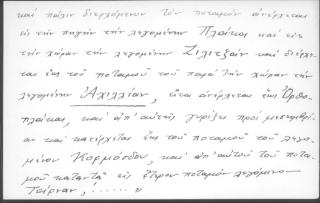 καὶ πάλιν διερχόμενον τὸν ποταμὸν ἀνέρχεται
εἰς τὴν πηγὴν τὴν λεγομένην Πλάκαι καὶ εἰς
τὴν χώραν τὴν λεγομένην Ζιλιτζαὶν καὶ διέρχε-
ται ἕως τοῦ ποταμοῦ τοῦ παρὰ τὴν χώραν τὴν
λεγομένην Ἀχιλλίαν, εἶτα ἀνέρχεται ἕως Ὀρθο-
πλάκας, καὶ ἀπ' αὐτῆς γυρίζει πρὸς μεσημβρί-
αν καὶ κατέρχεται ἕως τοῦ ποταμοῦ τοῦ λεγο-
μένου Κορμόσδου, καὶ ἀπ' αὐτοῦ τοῦ ποτα-
μοῦ καταντᾷ εἰς ἕτερον ποταμὸν λεγόμενον